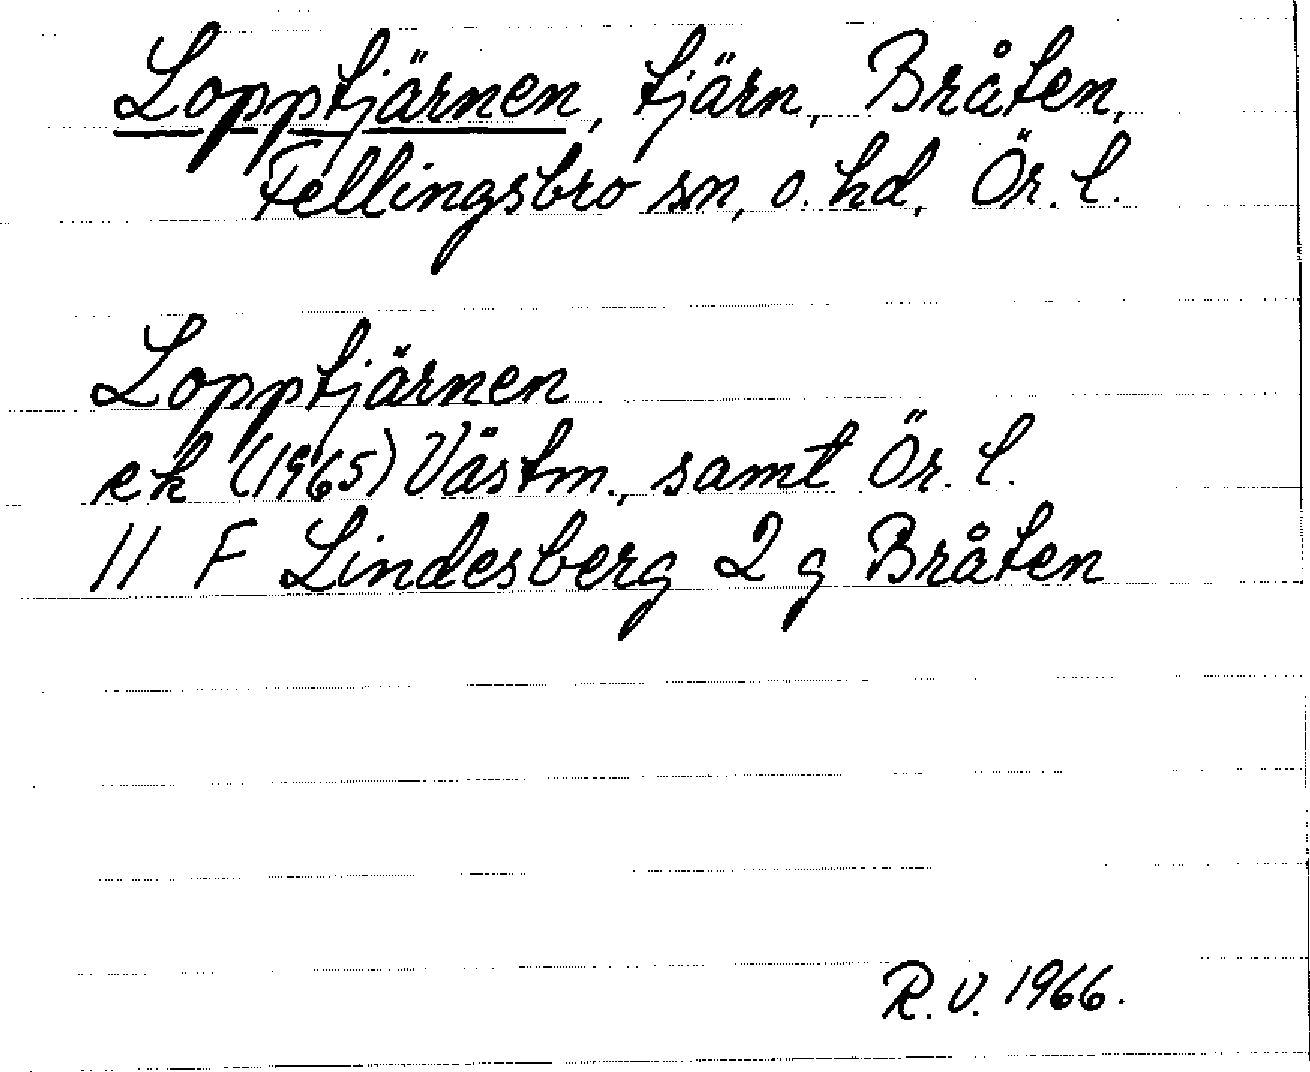 Lopptjärnen, tjärn, Bråten,
Fellingsbro sn, o. hd, Ör. l.
Lopptjärnen
ek (1965) Västm., samt Ör. l.
11 F Lindesberg 2 g Bråten
R. V. 1966.